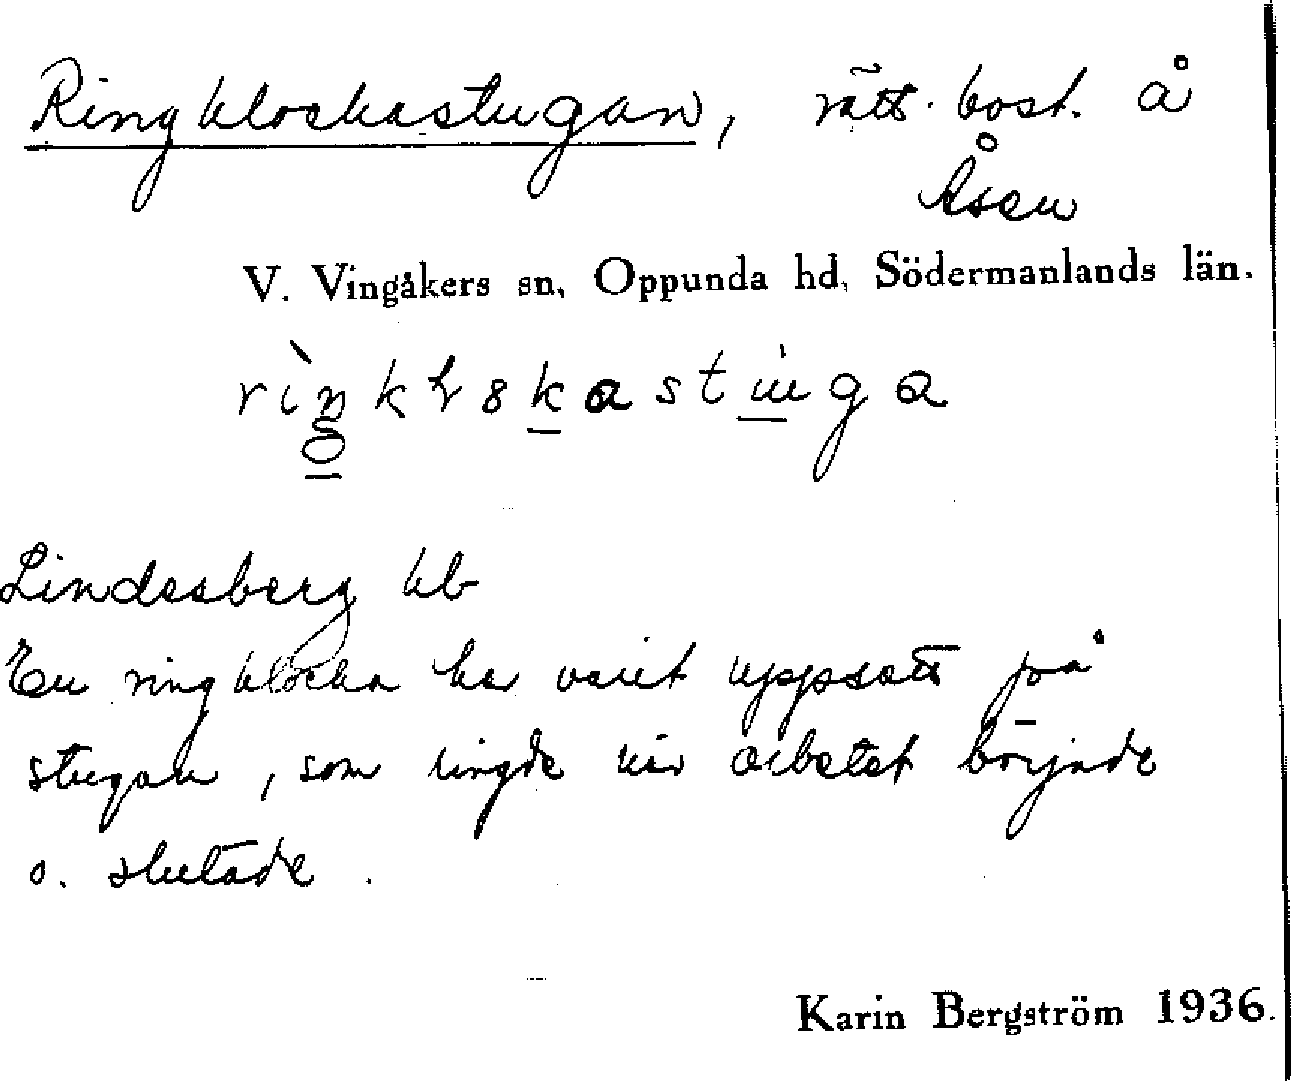 Ringklockastugan, rätt. bost. å
Åsen
V. Vingåkers sn, Oppunda hd, Södermanlands län.
Lindesberg kb
En ringklocka har varit uppsatt på
stugan, som ringde när arbetet började
o. slutade.
Karin Bergström 1936.